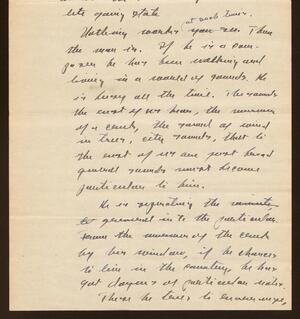 at such times.
Nothing sounds you see. Then
the man is. If he is a com-
poser he has been walking and
living in a world of sounds. He
is busy all the time. The sounds
the rest of us hear, the murmur
of a creek, the sound of wind
in trees, city sounds, that to
the rest of us are just broad
general sounds must become
particular to him.
He is separating the
general into the particular.
the murmur of the creek
by his window, if he chances
to live in the country, he has
got dozens of particular notes.
These he tries to